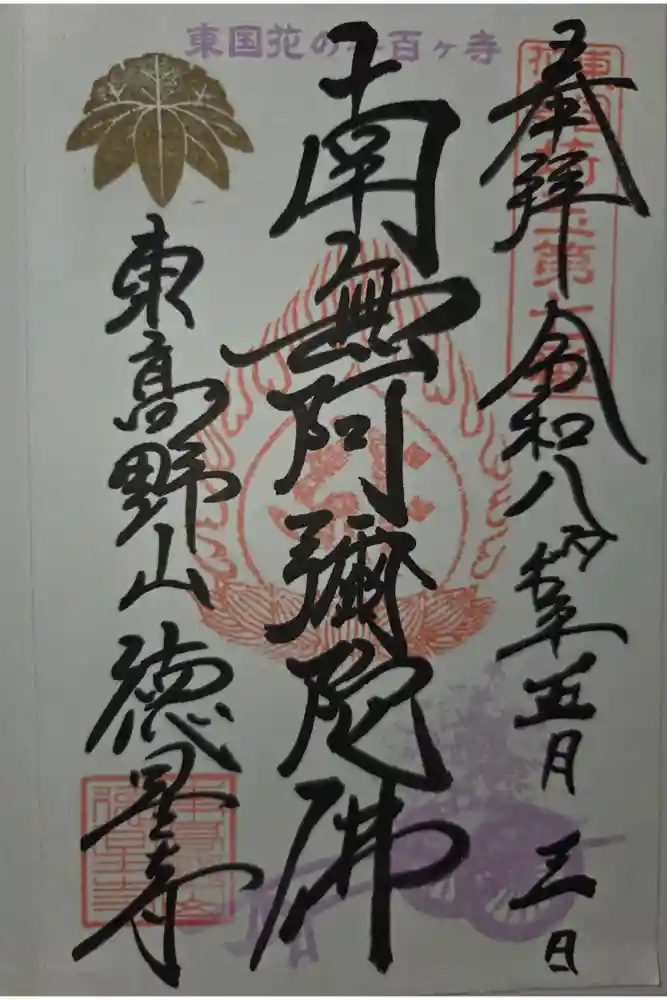 東国花の寺百ヶ寺
奉拝 令和八丙午年五月三日
南無阿彌陀佛
東高野山 徳星寺